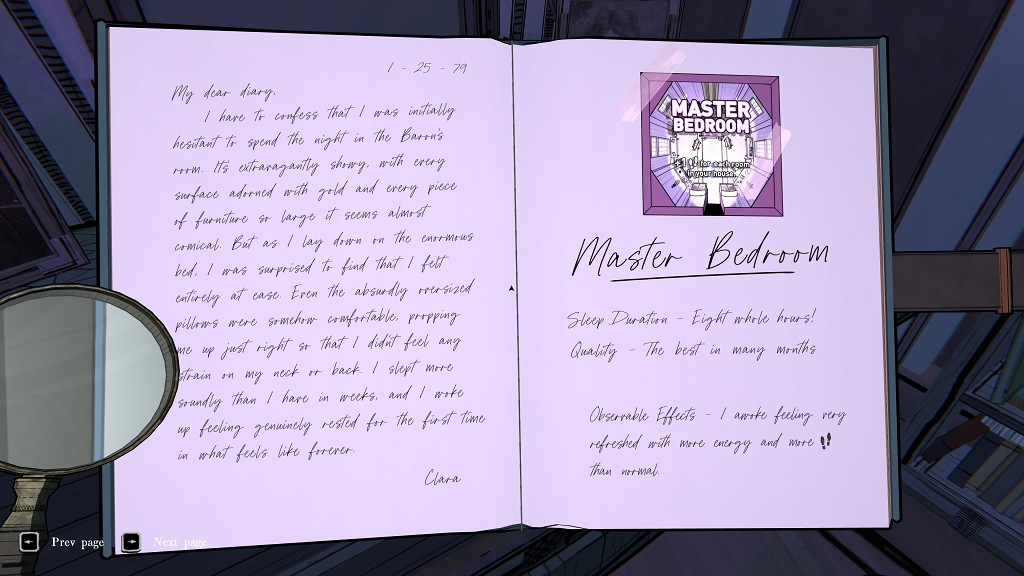 1 - 25 - 79
My dear diary,
I have to confess that I was initially
hesitant to spend the night in the Baron's
room. It's extravagantly showy, with every
surface adorned with gold and every piece
of furniture so large it seems almost
comical. But as I lay down on the enormous
bed, I was surprised to find that I felt
entirely at ease. Even the absurdly oversized
pillows were somehow comfortable, propping
me up just right so that I didn't feel any
strain on my neck or back. I slept more
soundly than I have in weeks, and I woke
up feeling genuinely rested for the first time
in what feels like forever.
Clara
MASTER
BEDROOM
+1 for each room
in your house.
Master Bedroom
Sleep Duration - Eight whole hours!
Quality - The best in many months
Observable Effects - I awoke feeling very
refreshed with more energy and more
than normal.
Prev page
Next page